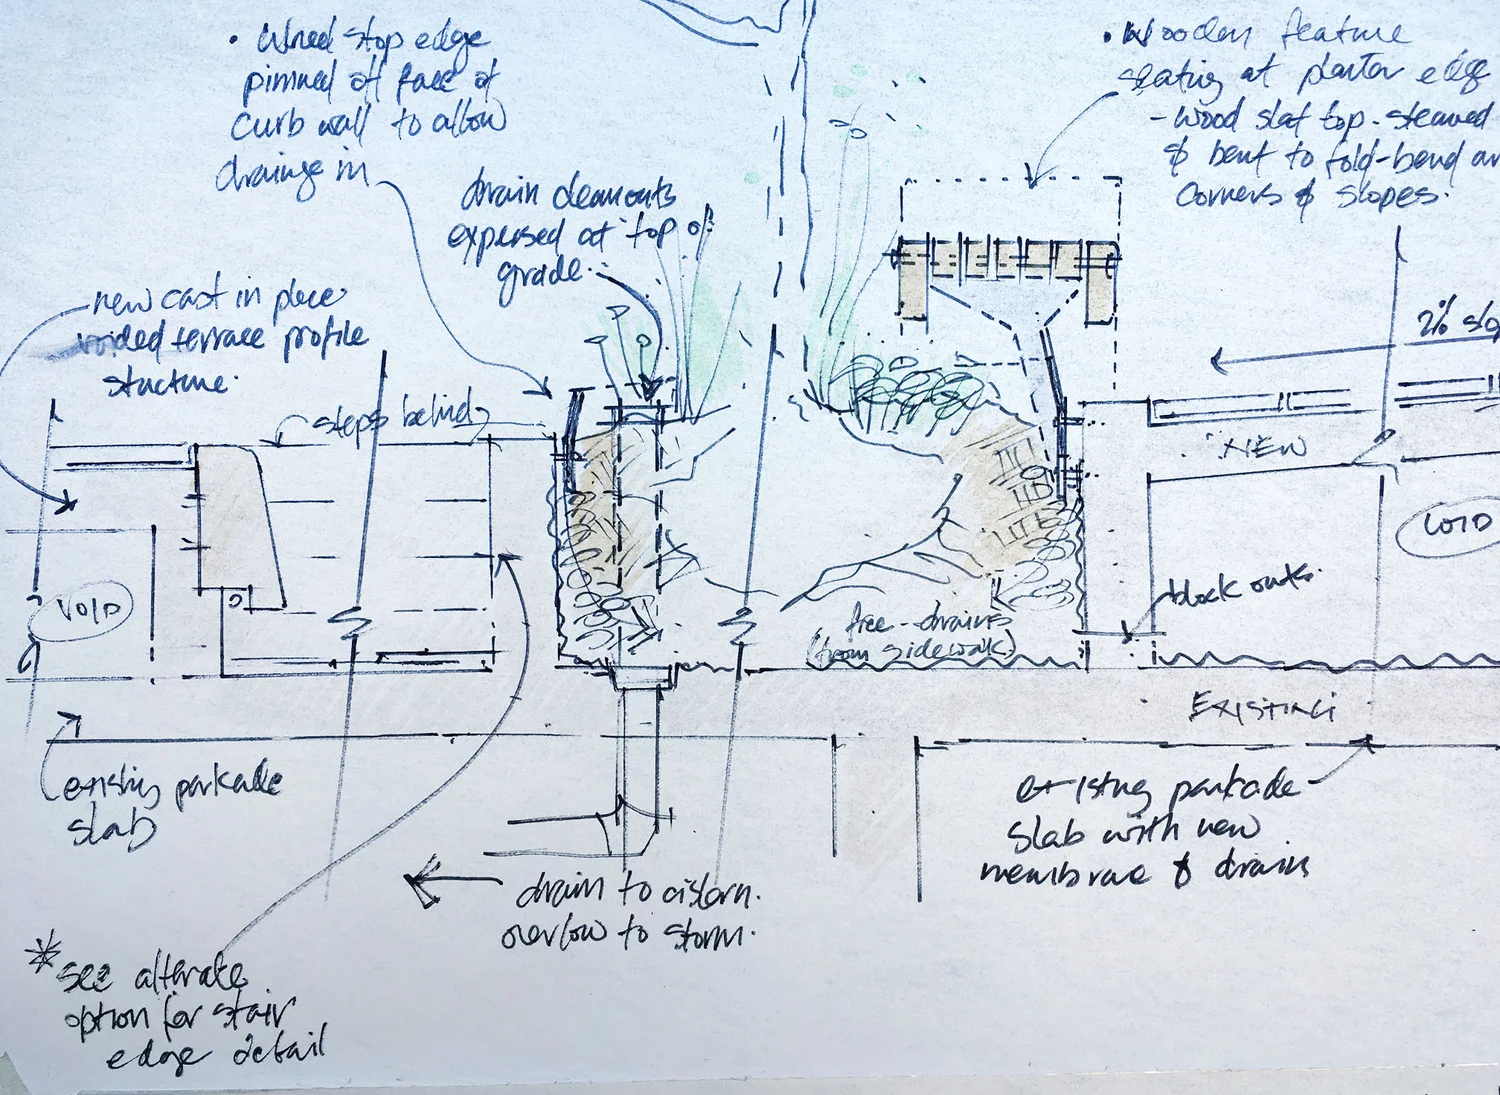 • Wheel stop edge
pinned off face of
curb wall to allow
drainge in
drain cleanouts
exposed at top of
grade.
• Wooden feature
seating at planter edge
- wood slat top - steamed
& bent to fold-bend ar
corners & slopes.
new cast in place
voided terrace profile
structure.
steps behind
2% slop
NEW
VOID
VOID
block outs.
free-drains
(from sidewalk)
EXISTING
existing parkade
slab
existing parkade
slab with new
membrane & drains
drain to cistern.
overlow to storm.
* see alternate
option for stair
edge detail